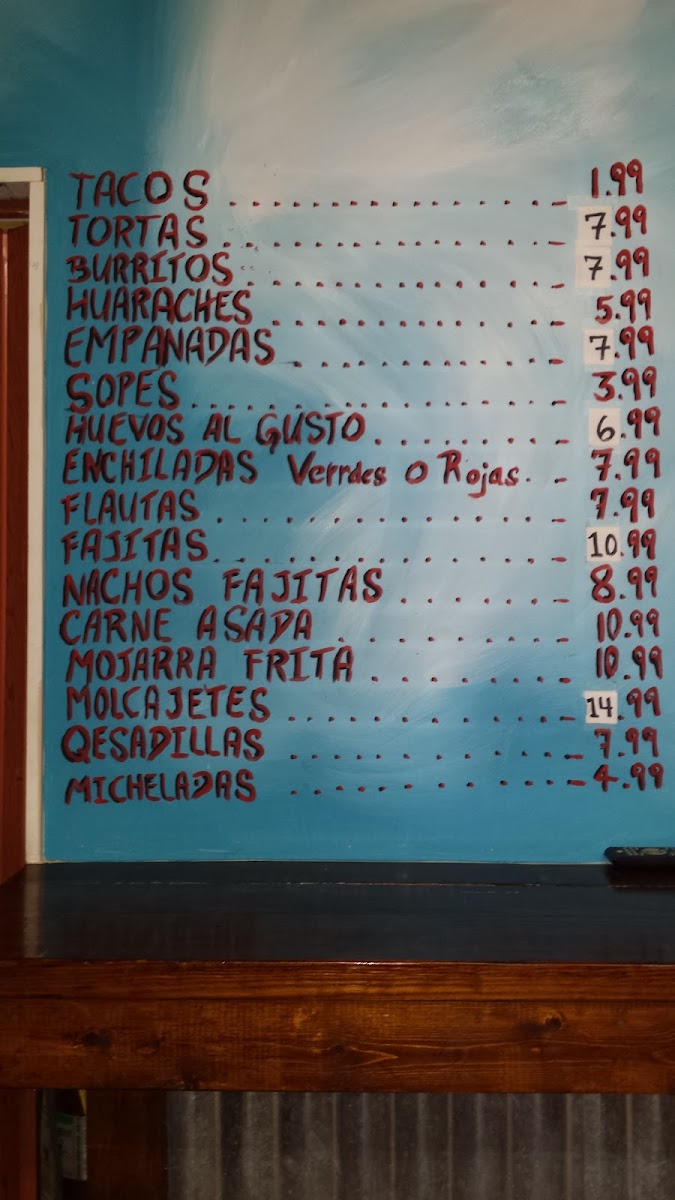 TACOS ..................... 1.99
TORTAS ..................... 7.99
BURRITOS ................... 7.99
HUARACHES .................. 5.99
EMPANADAS ................. 7.99
SOPES ...................... 3.99
HUEVOS AL GUSTO ........ 6.99
ENCHILADAS Verrdes O Rojas. . - 7.99
FLAUTAS .................... 7.99
FAJITAS .................... 10.99
NACHOS FAJITAS ....... 8.99
CARNE ASADA .......... 10.99
MOJARRA FRITA ........ 10.99
MOLCAJETES ............ 14.99
QESADILLAS ............ 7.99
MICHELADAS ............ 4.99